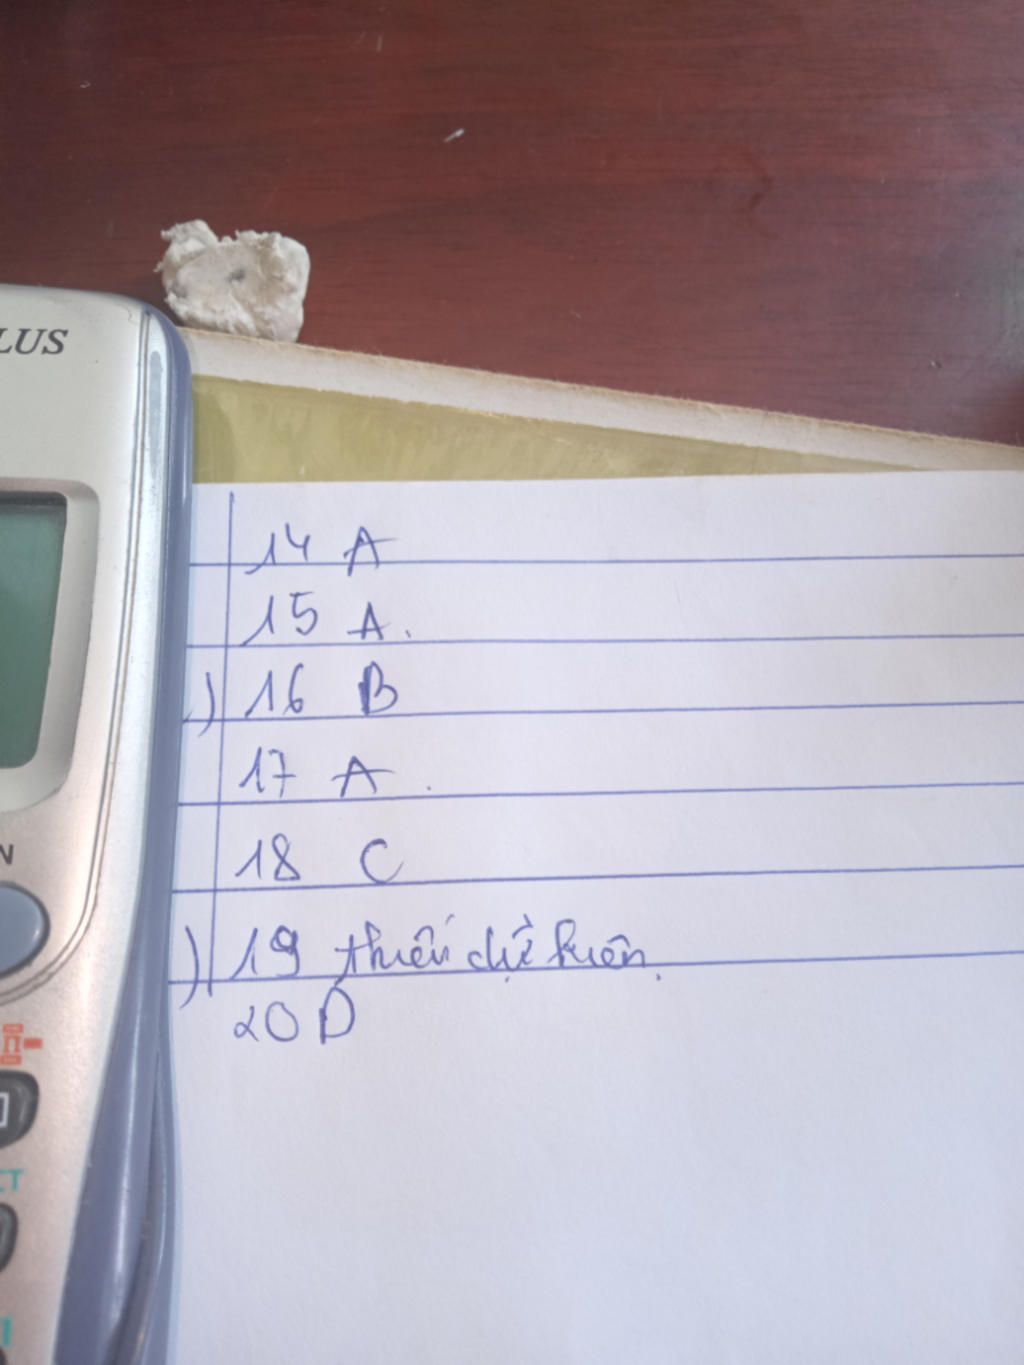 LUS
14 A
15 A.
) 16 B
17 A.
18 C
N
) 19 thiếu dự kiện.
20 D
CT